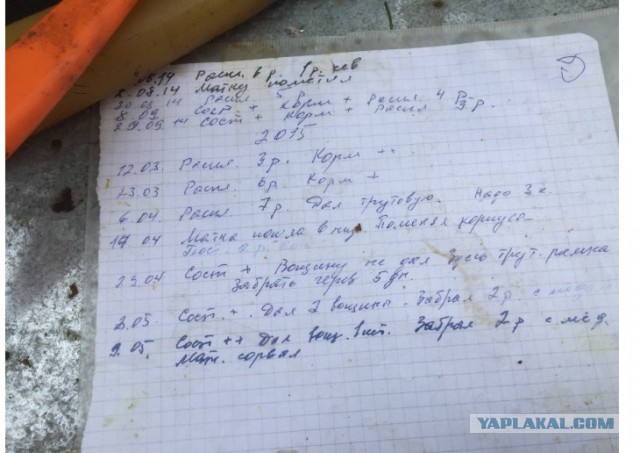 .08.14 Распл. 6 р. 1 р.
2.08.14 Матку пометил
20 09 14 Распл. 5 р.
8.09 Сост + Корм + Распл. 4 р.
29.09.14 Сост + Корм + Распл 3 р.
2015
12.03. Распл. 3 р. Корм ++
23.03 Распл. 6 р. Корм +
6.04 Распл. 7 р. Дал трутовую. Надо 3 к.
17 04 Матка пошла в низ Поменял корпуса
25.04 Сост + Вощину не дал трут. рамка
Забрать через 5 дн.
2.05 Сост. +. Дал 2 вощины. Забрал 2 р.
9.05. Сост ++ Дал вощ. 1 шт. Забрал 2 р с мёд.
Мат. сорвал
YAPLAKAL.COM